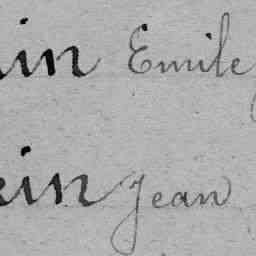 in Emile
ein Jean